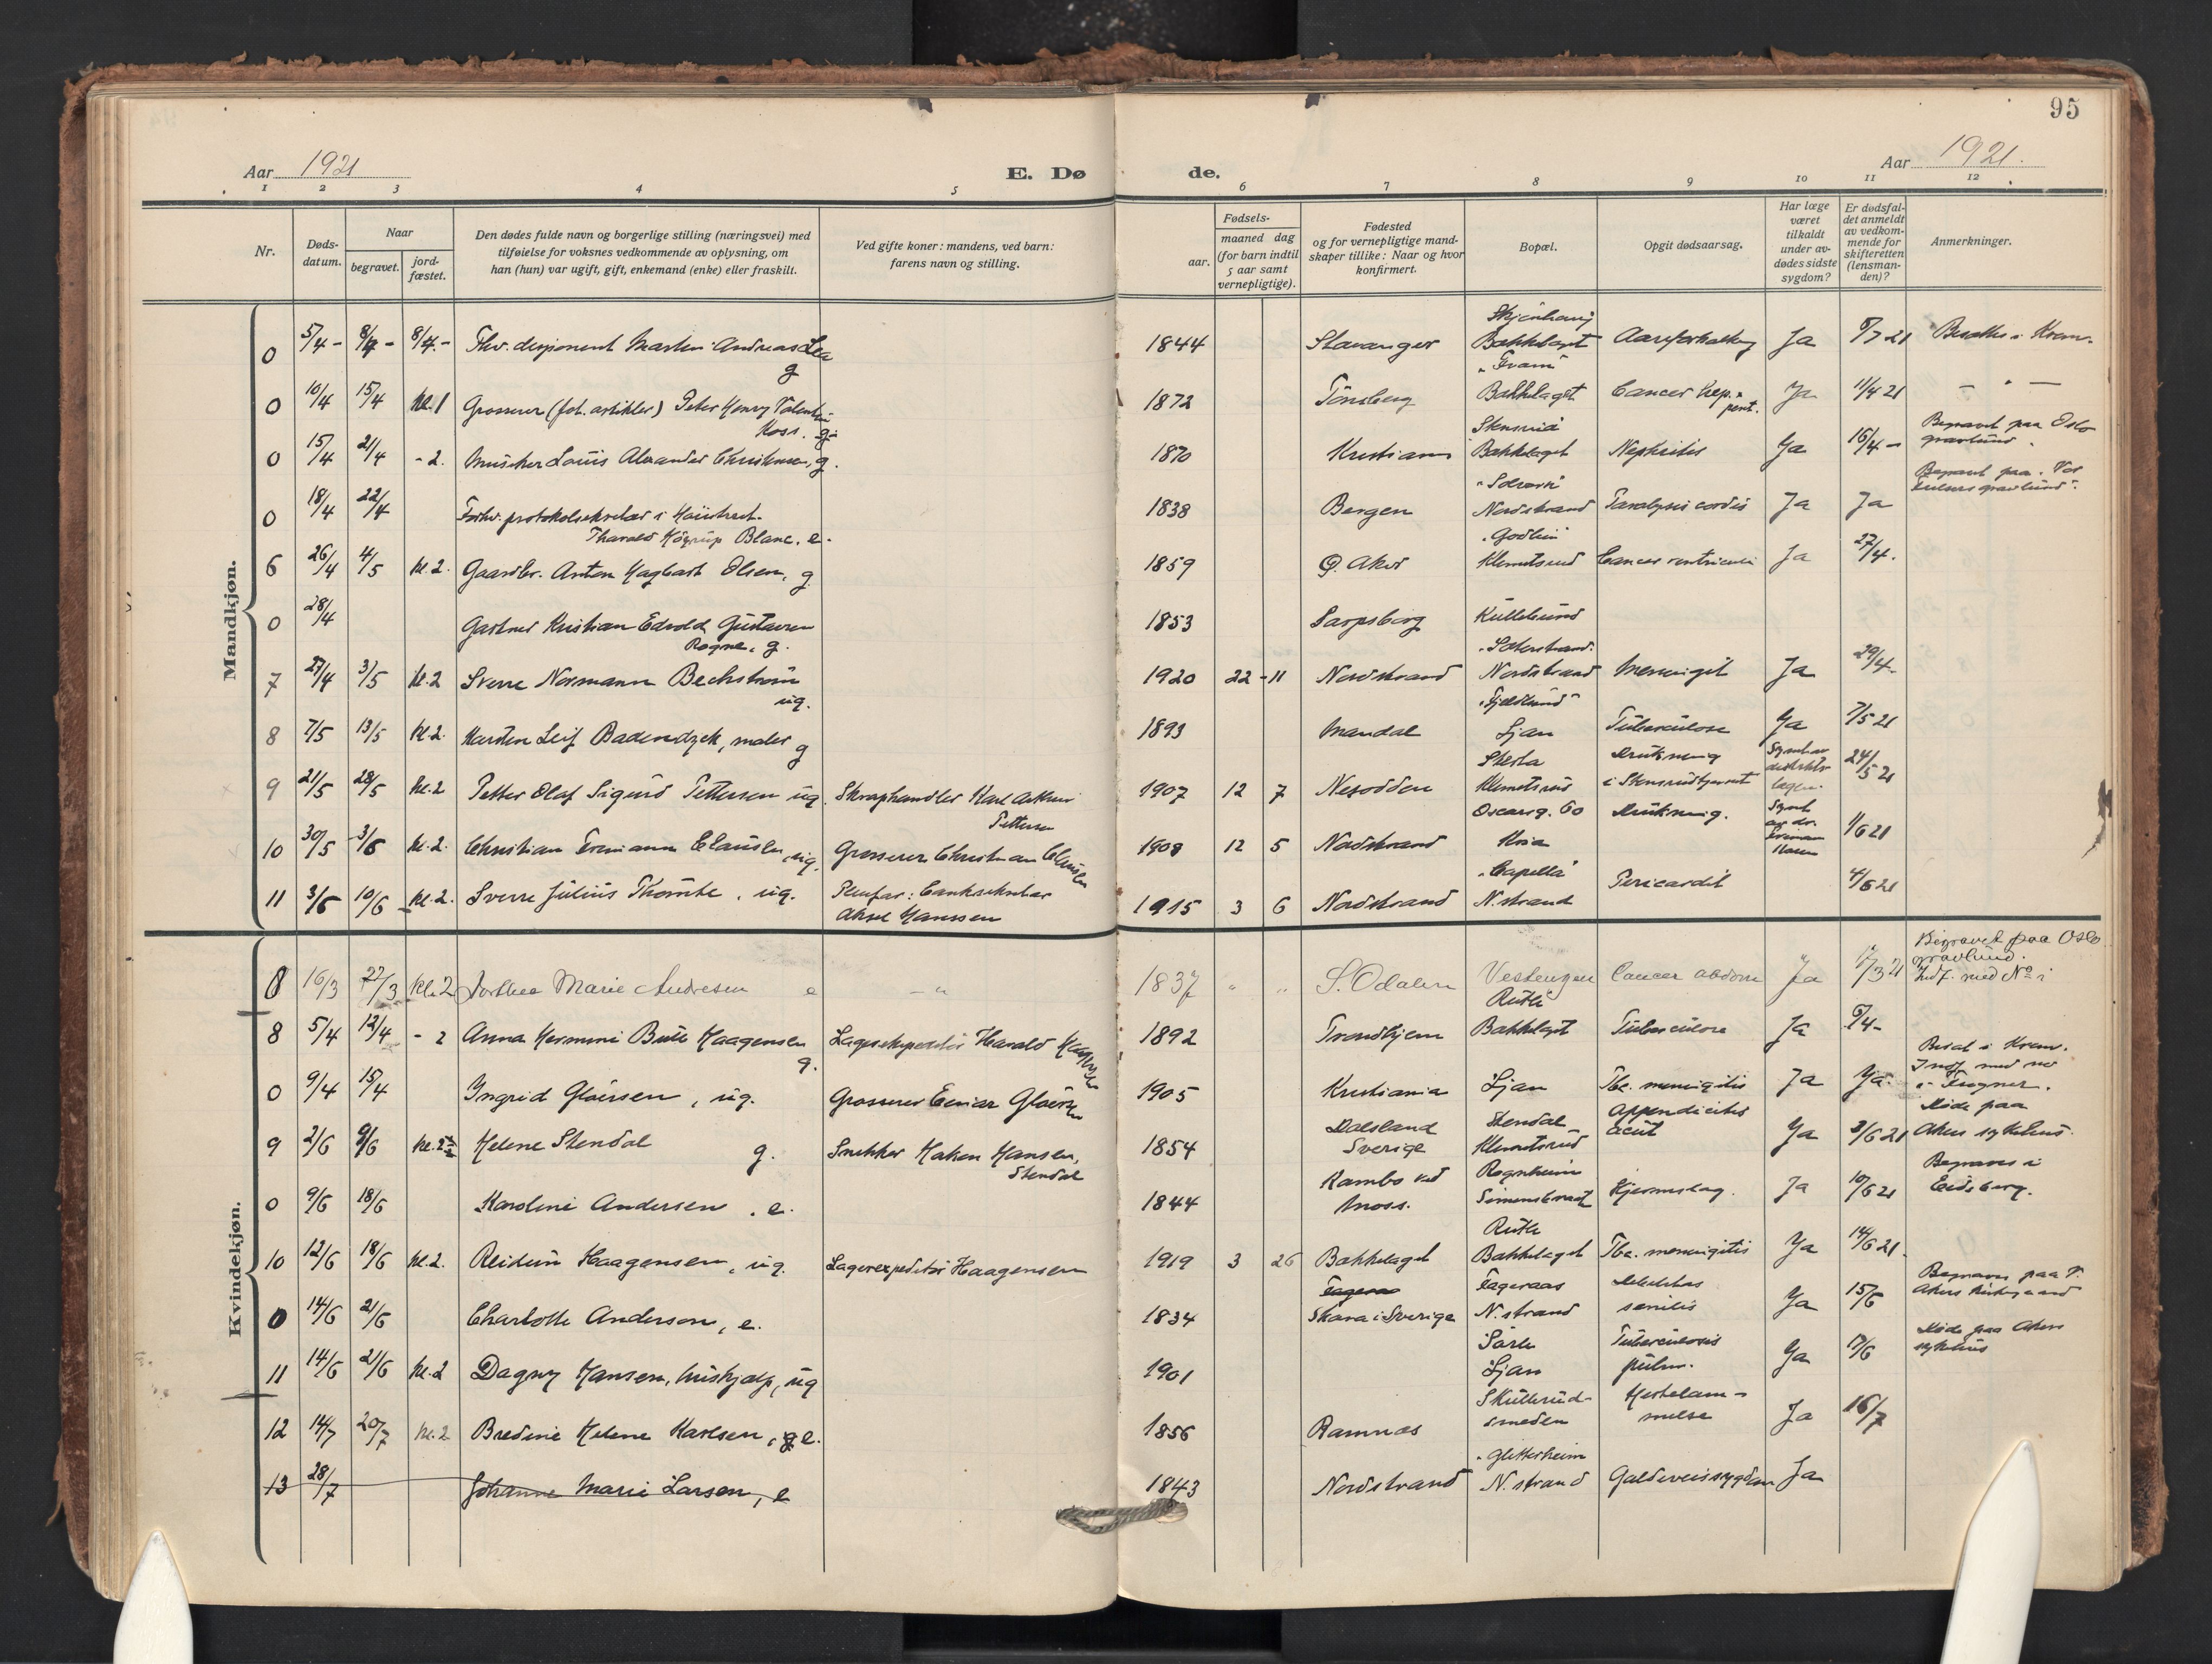 95
Aar 1921
E. Dø
de.
Aar 1921.
1 2 3 4 5 6 7 8 9 10 11 12
Nr.
Døds-
datum.
Naar
begravet.
jord-
fæstet.
Den dødes fulde navn og borgerlige stilling (næringsvei) med
tilføielse for voksnes vedkommende av oplysning, om
han (hun) var ugift, gift, enkemand (enke) eller fraskilt.
Ved gifte koner: mandens, ved barn:
farens navn og stilling.
Fødsels-
aar.
maaned dag
(for barn indtil
5 aar samt
vernepligtige).
Fødested
og for vernepligtige mand-
skaper tillike: Naar og hvor
konfirmert.
Bopæl.
Opgit dødsaarsag.
Har læge
været
tilkaldt
under av-
dødes sidste
sygdom?
Er dødsfal-
det anmeldt
av vedkom-
mende for
skifteretten
(lensman-
den)?
Anmerkninger.
Mandkjøn.
0 5/4 - 8/4 - 8/4.- Fhv. disponent Martin Andreas Lea g 1844 Stavanger Bakkelaget Aareforkalkning Ja
0 10/4 15/4 kl. 1 Grosserer (fot. artikler) Peter Henry Valentin g. 1872 Tönsberg "Fram" Bakkelaget Cancer hep. Ja 11/4 21 - " -
0 15/4 21/4 - 2. Musiker Louis Alexander Christensen, g. 1870 Kristiania Bakkelaget Nephritis Ja 16/4 - Begravet paa Oslo
gravlund.
0 18/4 22/4 Forhv. protokolsekretær i Höiesteret.
Tharald Höyrup Blanc, e. 1838 Bergen Nordstrand Paralysis cordis Ja Ja Begravet paa Vor
Frelsers gravlund.
6 26/4 4/5 kl. 2. Gaardbr. Anton Hagbart Olsen, g. 1859 Ø. Aker Klemetsrud Cancer ventriculi Ja 27/4.
0 28/4 Gartner Kristian Edvold Gustavsen
Rogne, g. 1853 Sarpsborg Kullebund
7 27/4 3/5 kl. 2 Sverre Normann Bechström
ug. 1920 22 - 11 Nordstrand Nordstrand Meningit Ja 29/4.
8 7/5 13/5 kl. 2. Karsten Leif Badendyck, maler g 1893 Mandal "Fjeldlund" Ljan Tuberculose Ja 7/5 21
9 21/5 28/5 kl. 2 Petter Olaf Sigurd Pettersen ug. Skraphandler Karl Arthur
Pettersen 1907 12 7 Nesodden Klemetsrud Drukning
i Stensrudtjernet 24/5 21
10 30/5 3/6 kl. 2. Christian Clausen, ug. Grosserer Christian Clausen 1908 12 5 Nordstrand Oscarsg. 60
Kria Drukning. 1/6 21
11 3/6 10/6 kl. 2. Sverre Julius Thomte, ug. Pleiefar: Banksekretær
Aksel Hanssen 1915 3 6 Nordstrand "Capella"
N.strand Pericardit 4/6 21
Kvindekjøn.
8 16/3 22/3 kl. 2 Dorthea Marie Andresen e - " 1837 " " S. Odalen Vestengen Cancer abdom Ja 17/3 21 Begravet paa Oslo
gravlund.
Indf. med No i
8 5/4 12/4 - 2 Anna Hermine Buli Haagensen g. Lagerekspeditör Harald Haagensen 1892 Trondhjem Ruth
Bakkelaget Tuberculose Ja
0 9/4 15/4 Ingrid Gloersen, ug. Grosserer Einar Gloersen 1905 Kristiania Ljan Tbc. meningitis Ja Ja.
9 2/6 9/6 Helene Stendal g. Snekker Haken Hansen,
Stendal 1854 Dalsland
Sverige Stendal
Klemetsrud Appendicitis
acut Ja 3/6 21 Döde paa
Akers sykehus.
0 9/6 18/6 Karoline Andersen, e. 1844 Kambo ved
Moss. Rognheim
Simensbraaten Hjerneslag. Ja 10/6 21 Begraves i
Eidsberg.
10 12/6 18/6 kl. 2. Reidun Haagensen, ug. Lagerexpeditör Haagensen 1919 3 26 Bakkelaget Ruth
Bakkelaget Tbc. meningitis Ja 14/6 21.
0 14/6 21/6 Charlotte Anderson, e. 1834 Fageraas
Skara i Sverige Fageraas
N.strand senilis Ja 15/6 Begraves paa V.
Akers kirkegaard
11 14/6 21/6 kl. 2 Dagny Hansen, hushjælp, ug 1901 Ljan Tuberculosis
pulm. Ja 17/6 Döde paa Akers
sykehus
12 14/7 20/7 kl. 2 Bredine Helene Karlsen, g e. 1856 Ramnæs Skullerud-
smeden Hjertelam-
melse Ja 16/7
13 28/7 Johanne Marie Larsen, e 1843 Nordstrand "Glitterheim
N.strand Galdeveissygdom Ja